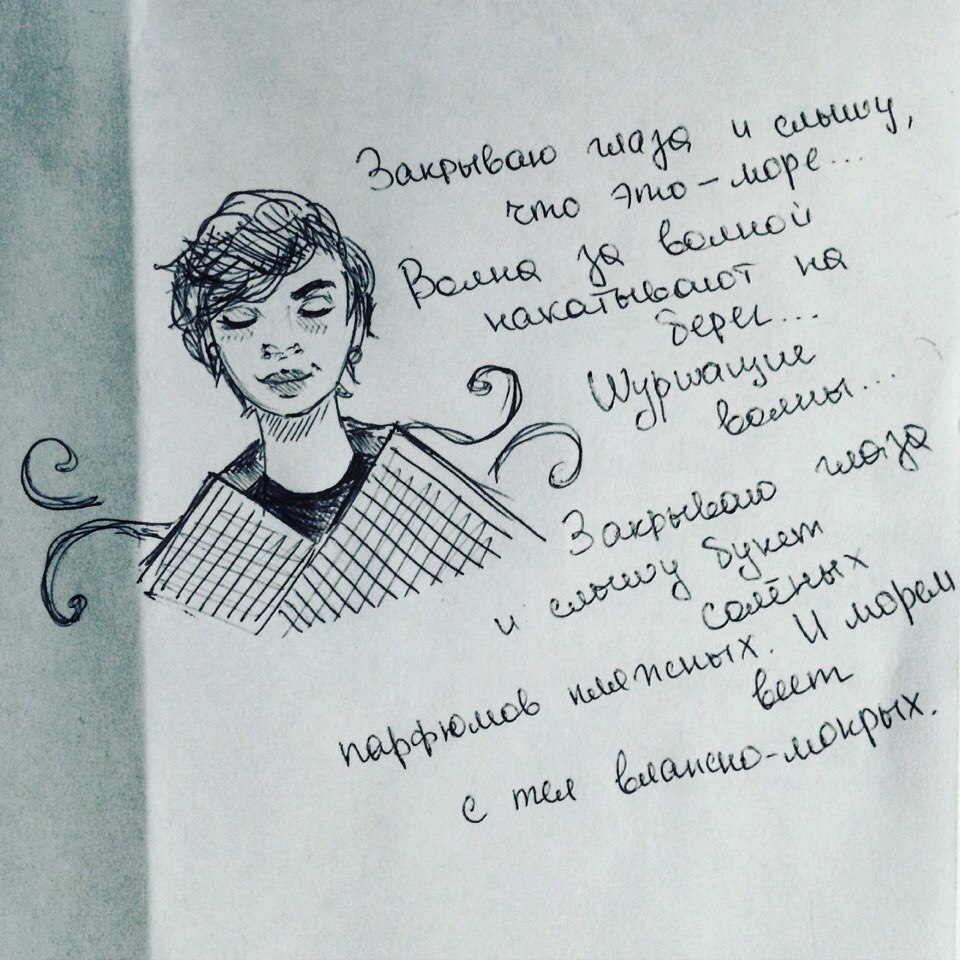 Закрываю глаза и слышу,
что это – море...
Волна за волной
накатывают на
берег...
Шуршащие
волны...
Закрываю глаза
и слышу букет
солёных
парфюмов пляжных. И морем
веет
с тел влажно-мокрых.